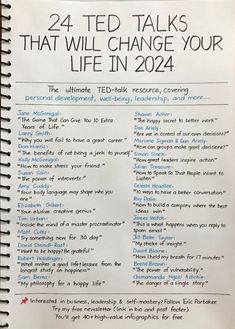 24 TED TALKS
THAT WILL CHANGE YOUR
LIFE IN 2024
The ultimate TED-talk resource, covering
personal development, well-being, leadership, and more...
Jane McGonigal:
"The Game That Can Give You 10 Extra
Years of Life."
Larry Smith:
"Why you will fail to have a great career."
Dan Harris:
"The benefits of not being a jerk to yourself"
Kelly McGonigal:
"How to make stress your friend."
Susan Cain:
"The power of introverts."
Amy Cuddy:
"Your body language may shape who
you are."
Elizabeth Gilbert:
"Your elusive creative genius"
Tim Urban:
"Inside the mind of a master procrastinator"
Matt Cutts:
"Try something new for 30 day"
David Steindl-Rast:
"Want to be happy? Be grateful"
Robert Waldinger:
"What makes a good life? Lessons from the
longest study on happiness"
Sam Berns:
"My philosophy for a happy life"
Shawn Achor:
"The happy secret to better work"
Dan Ariely:
"Are we in control of our own decisions?"
Mariano Sigman & Dan Ariely:
"How can groups make good decisions?"
Simon Sinek:
"How great leaders inspire action"
Julian Treasure:
"How to Speak So That People Want
to Listen"
Celeste Headlee:
"10 ways to have a better conversation"
Ray Dalio:
"How to build a company where the best
ideas win"
James Veitch:
"This is what happens when you reply to
spam email"
Jill Bolte Taylor:
"My stroke of insight"
David Blaine:
"How I held my breath for 17 minutes"
Brené Brown:
"The power of vulnerability"
Chimamanda Ngozi Adichie:
"The danger of a single story"
Interested in business, leadership & self-mastery? Follow Eric Partaker.
Try my free newsletter (link in bio and post footer)
You'll get 40+ high-value infographics for free.